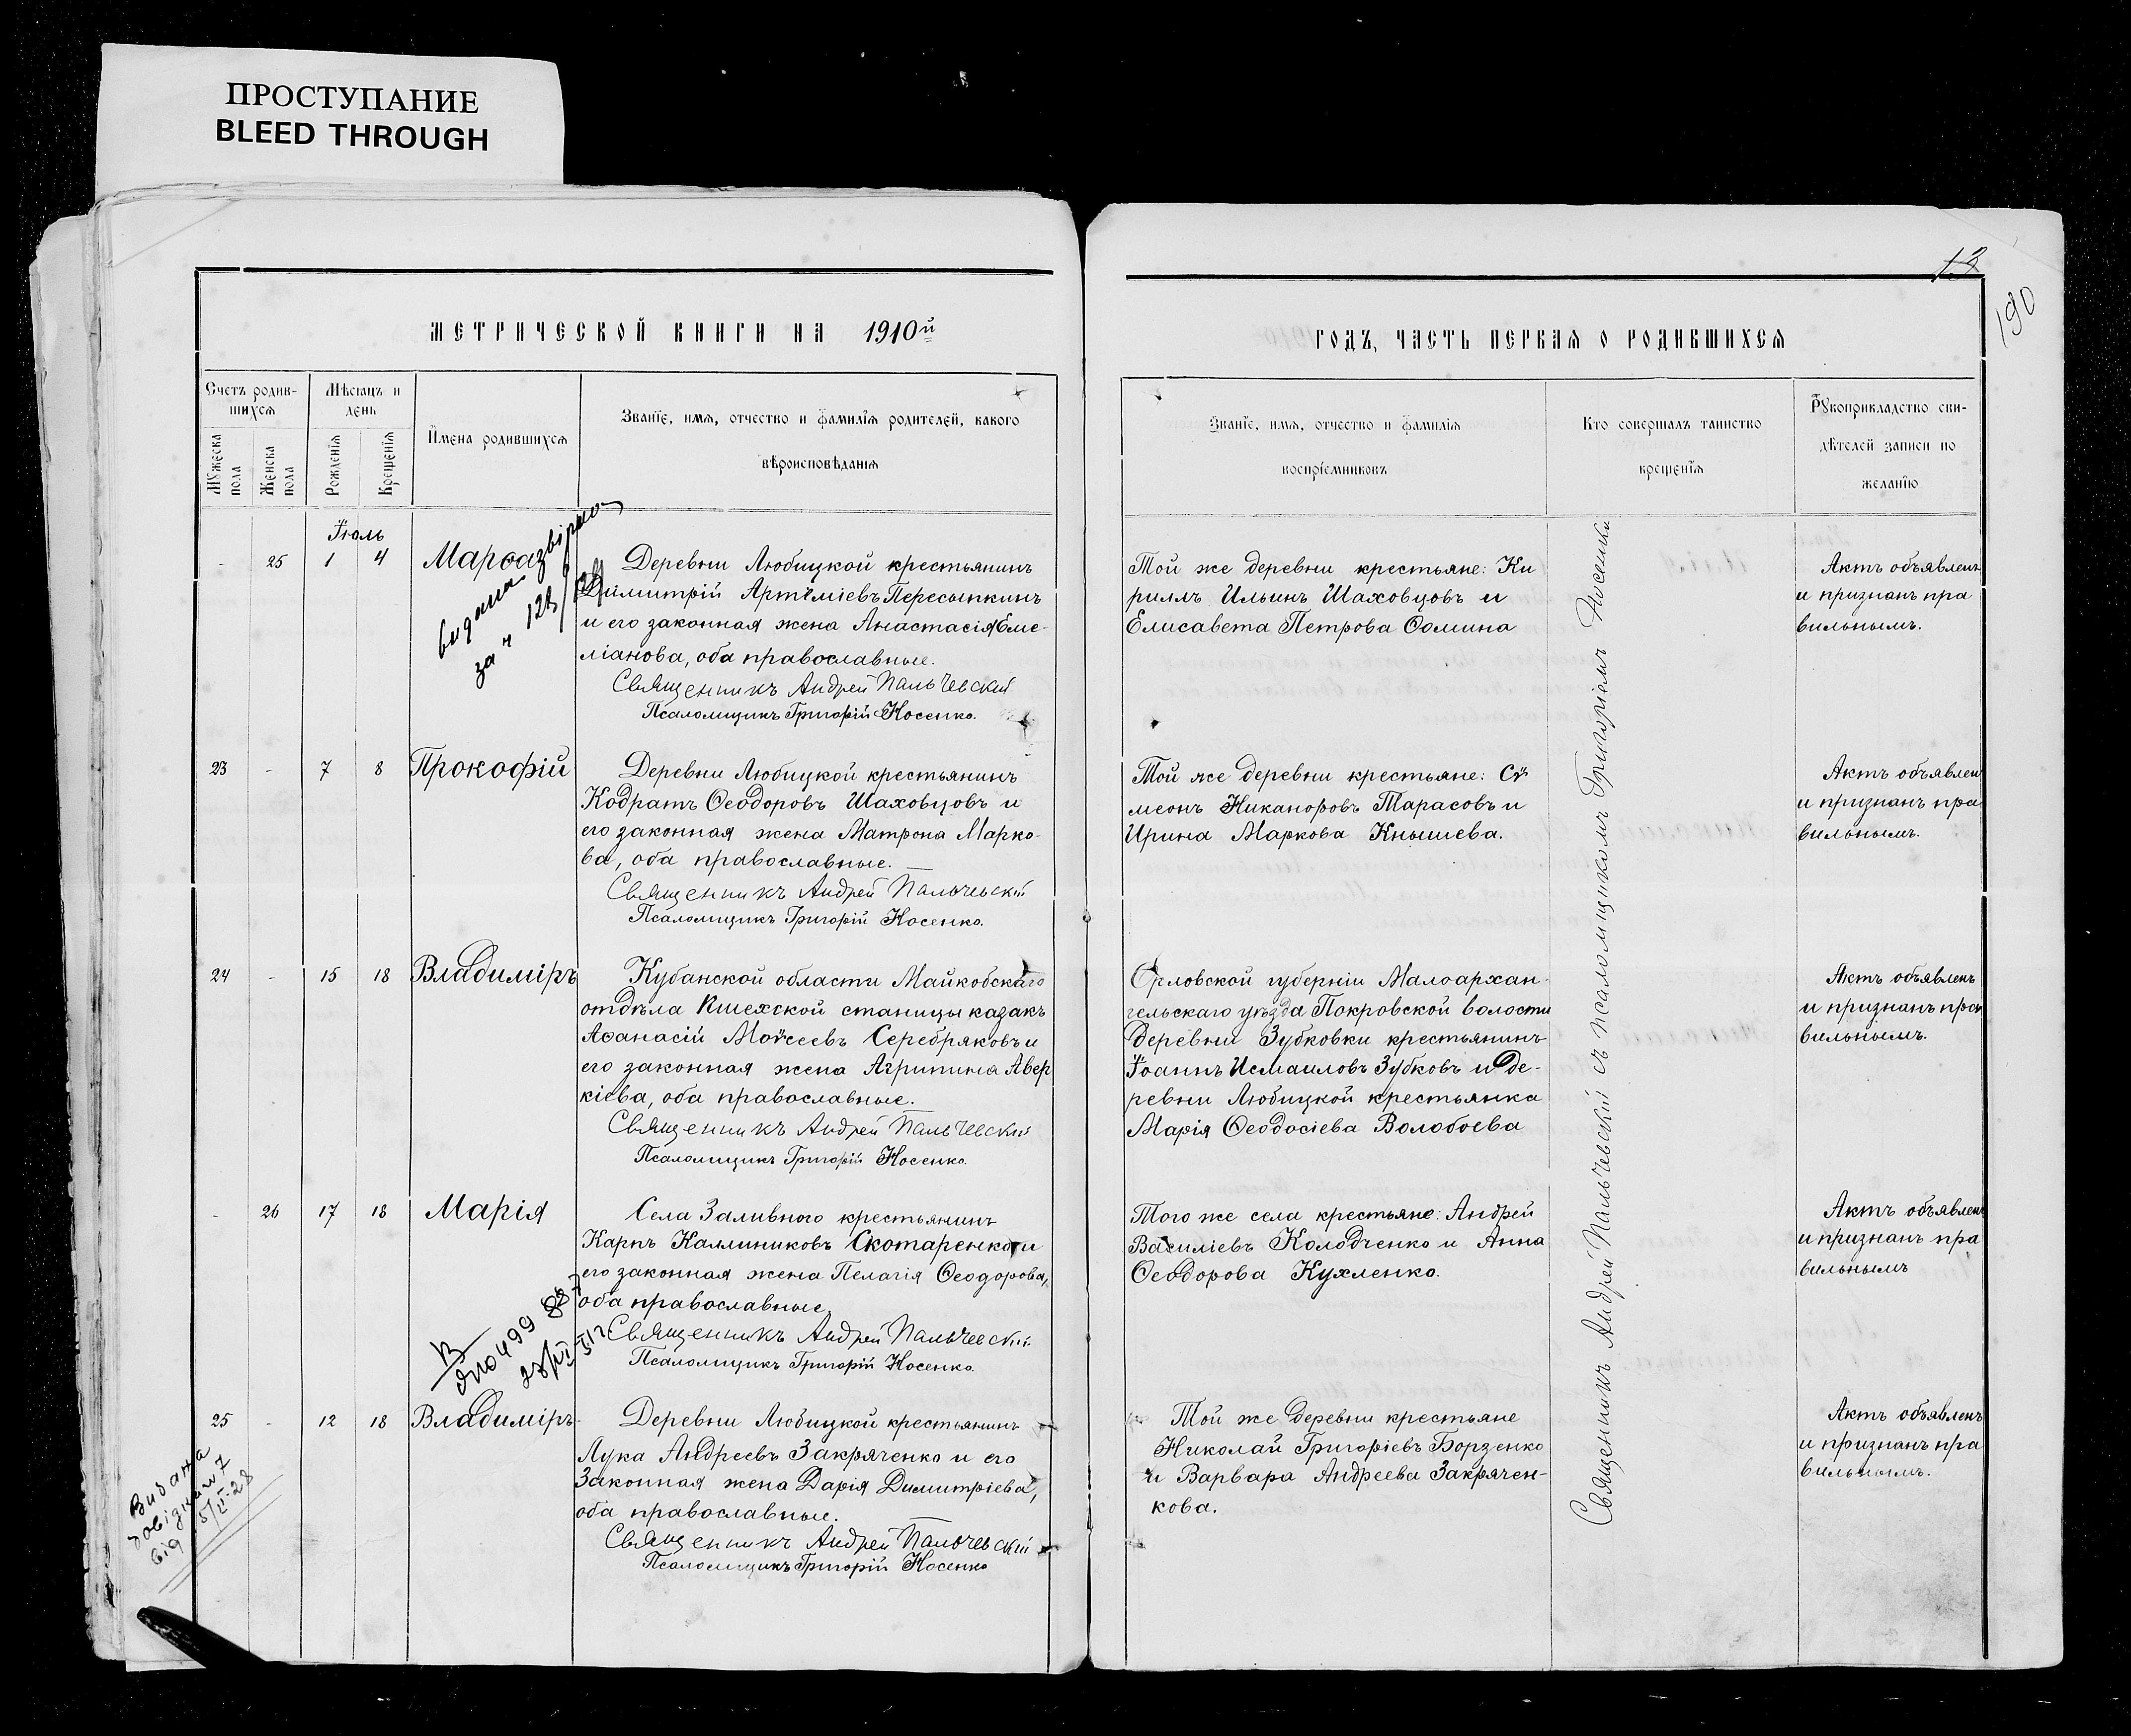 ПРОСТУПАНИЕ
BLEED THROUGH
13
190
МЕТРИЧЕСКОЙ КНИГИ НА 1910й
ГОДЪ, ЧАСТЬ ПЕРВАЯ О РОДИВШИХСЯ
Счетъ родив-
шихся
Мѣсяцъ и
день
Мужеска
пола
Женска
пола
Рожденія
Крещенія
Имена родившихся
Званіе, имя, отчество и фамилія родителей, какого
вѣроисповѣданія
Званіе, имя, отчество и фамилія
воспріемниковъ
Кто совершалъ таинство
крещенія
Рукоприкладство сви-
дѣтелей записи по
желанію
Іюль
- 25 1 4 Марѳа
видана
за ч 128
Деревни Любицкой крестьянинъ
Димитрій Артеміевъ Пересыпкинъ
и его законная жена Анастасія Еме-
ліанова, оба православные.
Священникъ Андрей Пальчевскій
Псаломщикъ Григорій Носенко.
Той же деревни крестьяне: Ки
риллъ Ильинъ Шаховцовъ и
Елисавета Петрова Ѳомина
Актъ объявленъ
и признанъ пра
вильнымъ.
23 - 7 8 Прокофій
Деревни Любицкой крестьянинъ
Кодратъ Ѳеодоровъ Шаховцовъ и
его законная жена Матрона Марко-
ва, оба православные.
Священникъ Андрей Пальчевскій
Псаломщикъ Григорій Носенко.
Той же деревни крестьяне: Сѵ
меонъ Никаноровъ Тарасовъ и
Ирина Маркова Кнышева.
Актъ объявлен
и признанъ пра
вильнымъ.
24 - 15 18 Владиміръ
Кубанской области Майкобскаго
отдѣла Пшехской станицы казакъ
Аѳанасій Моѵсеевъ Серебряковъ и
его законная жена Агрипина Авер
кіева, оба православные.
Священникъ Андрей Пальчевскій
Псаломщикъ Григорій Носенко.
Орловской губерніи Малоархан-
гельскаго уѣзда Покровской волости
деревни Зубковки крестьянинъ
Іоаннъ Исмаиловъ Зубковъ и де-
ревни Любицкой крестьянка
Марія Ѳеодосіева Волобоева
Актъ объявленъ
и признанъ пра
вильнымъ.
- 26 17 18 Марія
Села Заливного крестьянинъ
Карпъ Каллиниковъ Скотаренко и
его законная жена Пелагія Ѳеодорова,
оба православные.
Священникъ Андрей Пальчевскій
Псаломщикъ Григорій Носенко.
Того же села крестьяне: Андрей
Василіевъ Колодченко и Анна
Ѳеодорова Кухленко.
Актъ объявленъ
и признанъ пра
вильнымъ
25 - 12 18 Владиміръ
Деревни Любицкой крестьянинъ
Лука Андреевъ Закряченко и его
законная жена Дарія Димитріева,
оба православные.
Священникъ Андрей Пальчевскій
Псаломщикъ Григорій Носенко
Той же деревни крестьяне
Николай Григоріевъ Борзенко
и Варвара Андреева Закрячен-
кова.
Актъ объявленъ
и признанъ пра
вильнымъ.
Видана
довідка ч 7
від 5/II-28
Священникъ Андрей Пальчевскій съ псаломщикомъ Григоріемъ Носенко